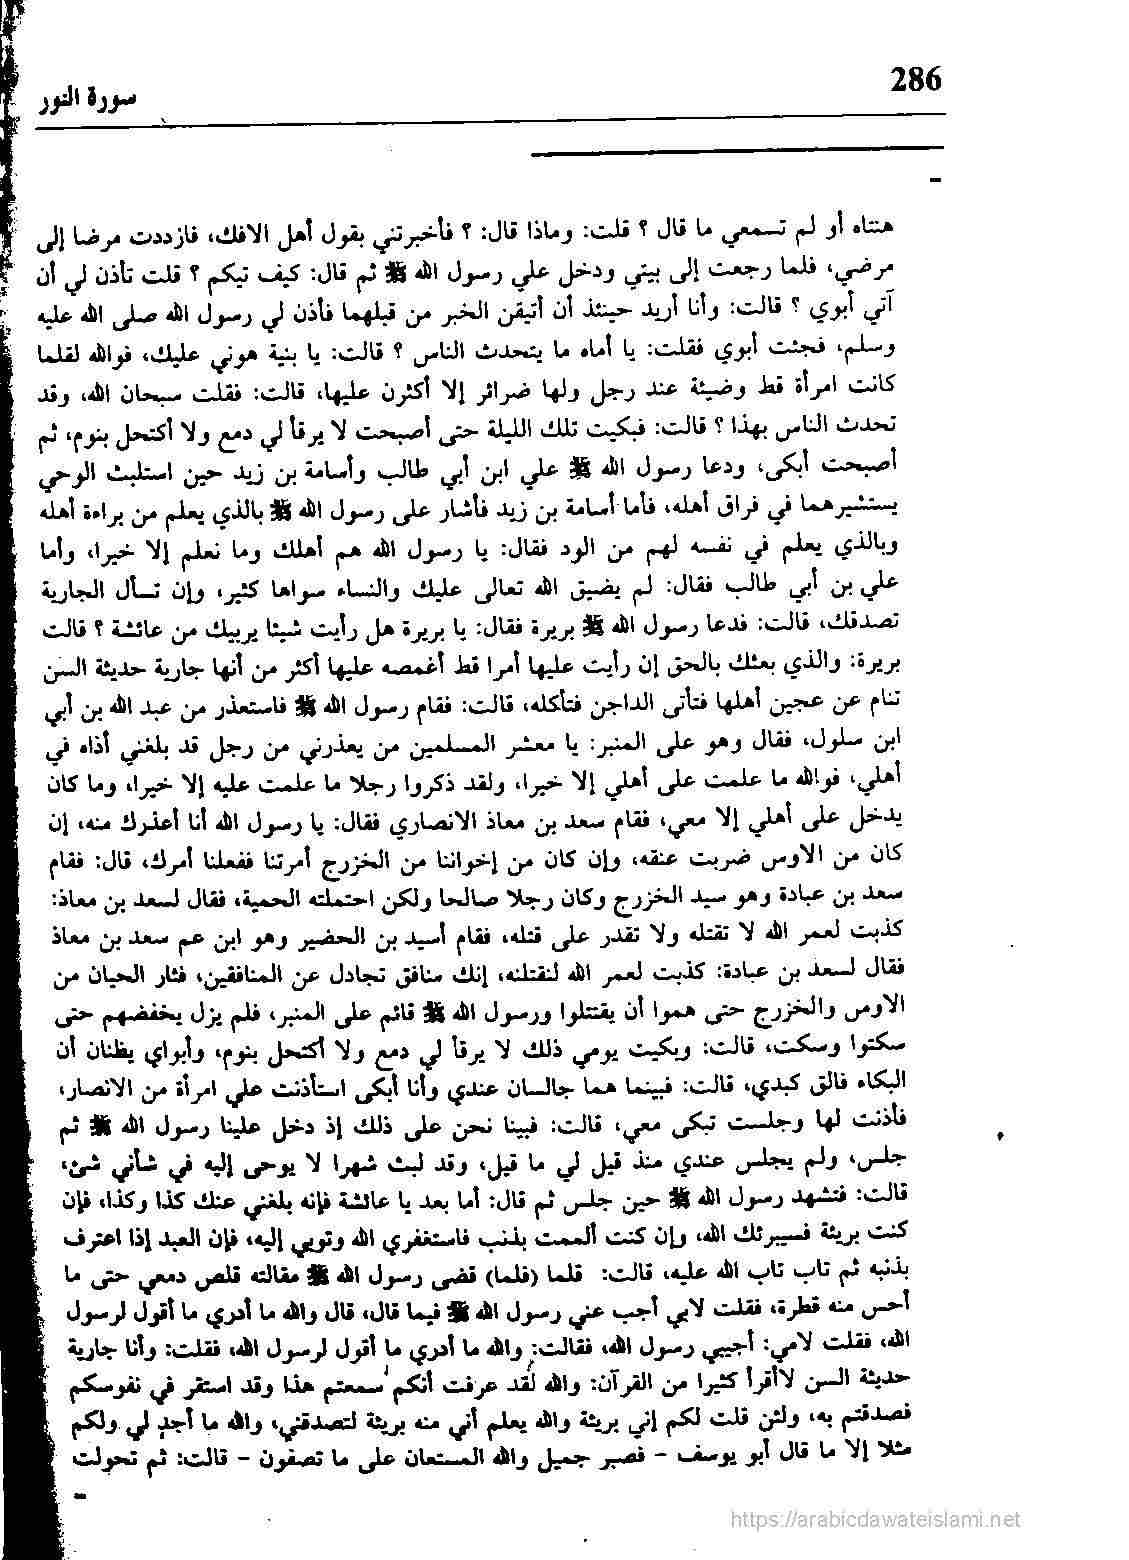 286
سورة النور
هنتاه أو لم تسمعي ما قال ؟ قلت: وماذا قال: ؟ فأخبرتني بقول أهل الافك، فازددت مرضا إلى
مرضي، فلما رجعت إلى بيتي ودخل علي رسول الله ﷺ ثم قال: كيف تيكم ؟ قلت تأذن لي أن
آتي أبوي ؟ قالت: وأنا أريد حينئذ أن أتيقن الخبر من قبلهما فأذن لي رسول الله صلى الله عليه
وسلم، فجئت أبوي فقلت: يا أماه ما يتحدث الناس ؟ قالت: يا بنية هوني عليك، فوالله لقلما
كانت امرأة قط وضيئة عند رجل ولها ضرائر إلا أكثرن عليها، قالت: فقلت سبحان الله، وقد
تحدث الناس بهذا ؟ قالت: فبكيت تلك الليلة حتى أصبحت لا يرقأ لي دمع ولا أكتحل بنوم، ثم
أصبحت أبكى، ودعا رسول الله ﷺ علي ابن أبي طالب وأسامة بن زيد حين استلبث الوحي
يستشيرهما في فراق أهله، فأما أسامة بن زيد فأشار على رسول الله ﷺ بالذي يعلم من براءة أهله
وبالذي يعلم في نفسه لهم من الود فقال: يا رسول الله هم أهلك وما نعلم إلا خيرا، وأما
علي بن أبي طالب فقال: لم يضيق الله تعالى عليك والنساء سواها كثير، وإن تسأل الجارية
تصدقك، قالت: فدعا رسول الله ﷺ بريرة فقال: يا بريرة هل رأيت شيئا يريبك من عائشة ؟ قالت
بريرة: والذي بعثك بالحق إن رأيت عليها أمرا قط أغمصه عليها أكثر من أنها جارية حديثة السن
تنام عن عجين أهلها فتأتى الداجن فتأكله، قالت: فقام رسول الله ﷺ فاستعذر من عبد الله بن أبي
ابن سلول، فقال وهو على المنبر: يا معشر المسلمين من يعذرني من رجل قد بلغني أذاه في
أهلي، فوالله ما علمت على أهلي إلا خيرا، ولقد ذكروا رجلا ما علمت عليه إلا خيرا، وما كان
يدخل على أهلي إلا معي، فقام سعد بن معاذ الانصاري فقال: يا رسول الله أنا أعذرك منه، إن
كان من الاوس ضربت عنقه، وإن كان من إخواننا من الخزرج أمرتنا ففعلنا أمرك، قال: فقام
سعد بن عبادة وهو سيد الخزرج وكان رجلا صالحا ولكن احتملته الحمية، فقال لسعد بن معاذ:
كذبت لعمر الله لا تقتله ولا تقدر على قتله، فقام أسيد بن الحضير وهو ابن عم سعد بن معاذ
فقال لسعد بن عبادة: كذبت لعمر الله لنقتلنه، إنك منافق تجادل عن المنافقين، فثار الحيان من
الاوس والخزرج حتى هموا أن يقتتلوا ورسول الله ﷺ قائم على المنبر، فلم يزل يخفضهم حتى
سكتوا وسكت، قالت: وبكيت يومي ذلك لا يرقأ لي دمع ولا أكتحل بنوم، وأبواي يظنان أن
البكاء فالق كبدي، قالت: فبينما هما جالسان عندي وأنا أبكى استأذنت علي امرأة من الانصار،
فأذنت لها وجلست تبكى معي، قالت: فبينا نحن على ذلك إذ دخل علينا رسول الله ﷺ ثم
جلس، ولم يجلس عندي منذ قيل لي ما قيل، وقد لبث شهرا لا يوحى إليه في شأني شئ،
قالت: فتشهد رسول الله ﷺ حين جلس ثم قال: أما بعد يا عائشة فإنه بلغني عنك كذا وكذا، فإن
كنت بريئة فسيبرئك الله، وإن كنت ألممت بذنب فاستغفري الله وتوبي إليه، فإن العبد إذا اعترف
بذنبه ثم تاب تاب الله عليه، قالت: قلما (فلما) قضى رسول الله ﷺ مقالته قلص دمعي حتى ما
أحس منه قطرة، فقلت لابي أجب عني رسول الله ﷺ فيما قال، قال والله ما أدري ما أقول لرسول
الله، فقلت لامي: أجيبي رسول الله، فقالت: والله ما أدري ما أقول لرسول الله، فقلت: وأنا جارية
حديثة السن لاأقرأ كثيرا من القرآن: والله لقد عرفت أنكم سمعتم هذا وقد استقر في نفوسكم
فصدقتم به، ولئن قلت لكم إني بريئة والله يعلم أني منه بريئة لتصدقني، والله ما أجد لي ولكم
مثلا إلا ما قال أبو يوسف - فصبر جميل والله المستعان على ما تصفون - قالت: ثم تحولت
https://arabicdawateislami.net